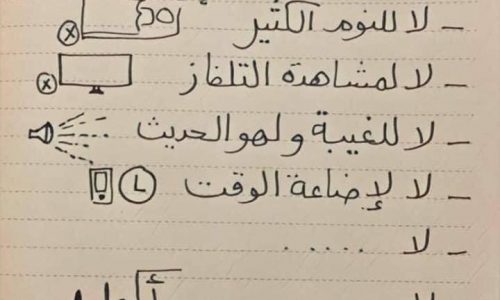 - لا للنوم الكثير
- لا لمشاهدة التلفاز
- لا للغيبة ولهو الحديث
- لا لإضاعة الوقت
- لا .....